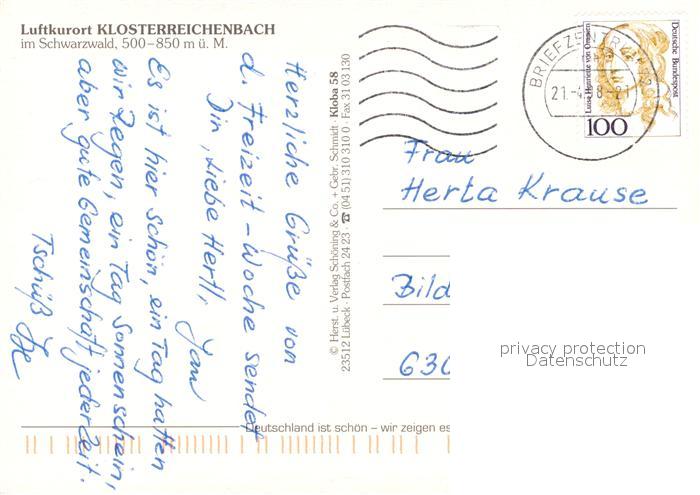 Luftkurort KLOSTERREICHENBACH
im Schwarzwald, 500–850 m ü. M.
Herzliche Grüße von
d. Freizeit-Woche sendet
Dir, liebe Hertl,
Es ist hier schön, ein Tag hatten
wir Regen, ein Tag Sonnenschein,
aber gute Gemeinschaft jederzeit.
Tschüß
© Herst. u. Verlag Schöning & Co. + Gebr. Schmidt · Kloba 58
23512 Lübeck · Postfach 24 23 · ☎ (04 51) 310 310 0 · Fax 31 03 130
BRIEFZEN
21.-4
8-21
Deutsche Bundespost
Luise Henriette von Oranien
100
Frau
Herta Krause
Bild
630
privacy protection
Datenschutz
Deutschland ist schön – wir zeigen es